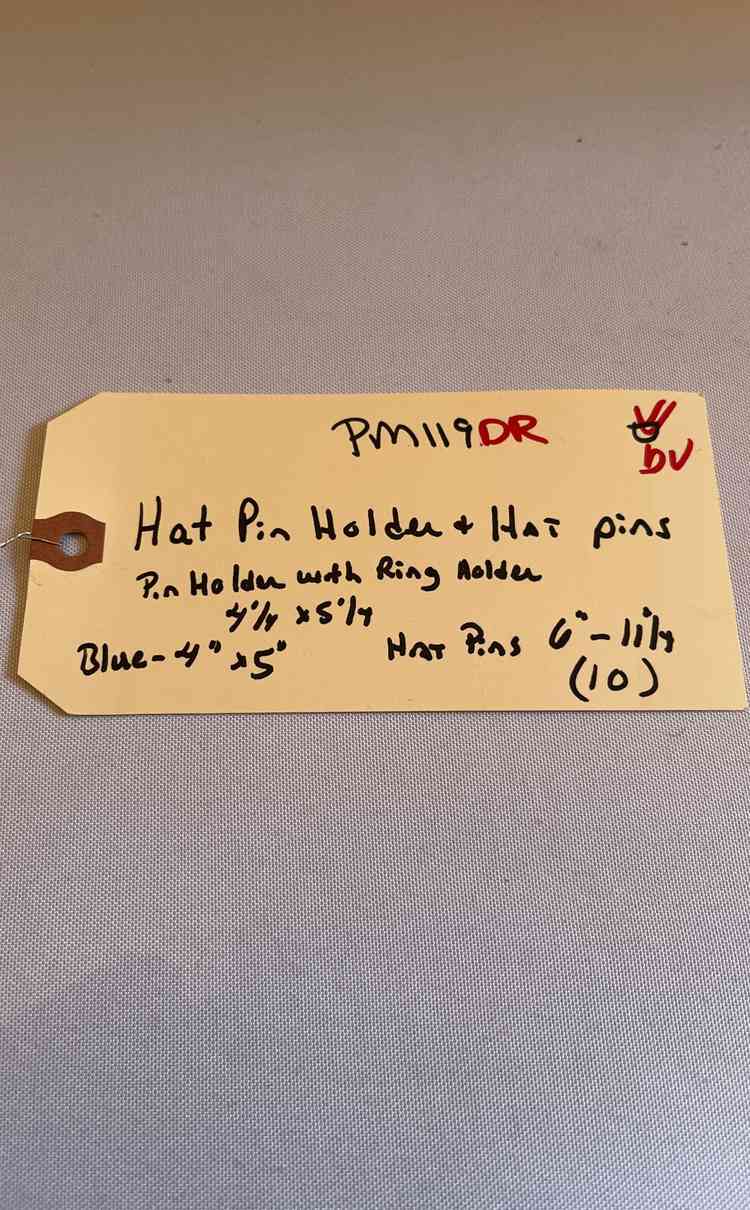 PM119DR
bv
Hat Pin Holder + Hat pins
Pin Holder with Ring Holder
4"1/4 x 5"1/4
Blue - 4" x 5"
Hat Pins 6" - 11"1/4
(10)